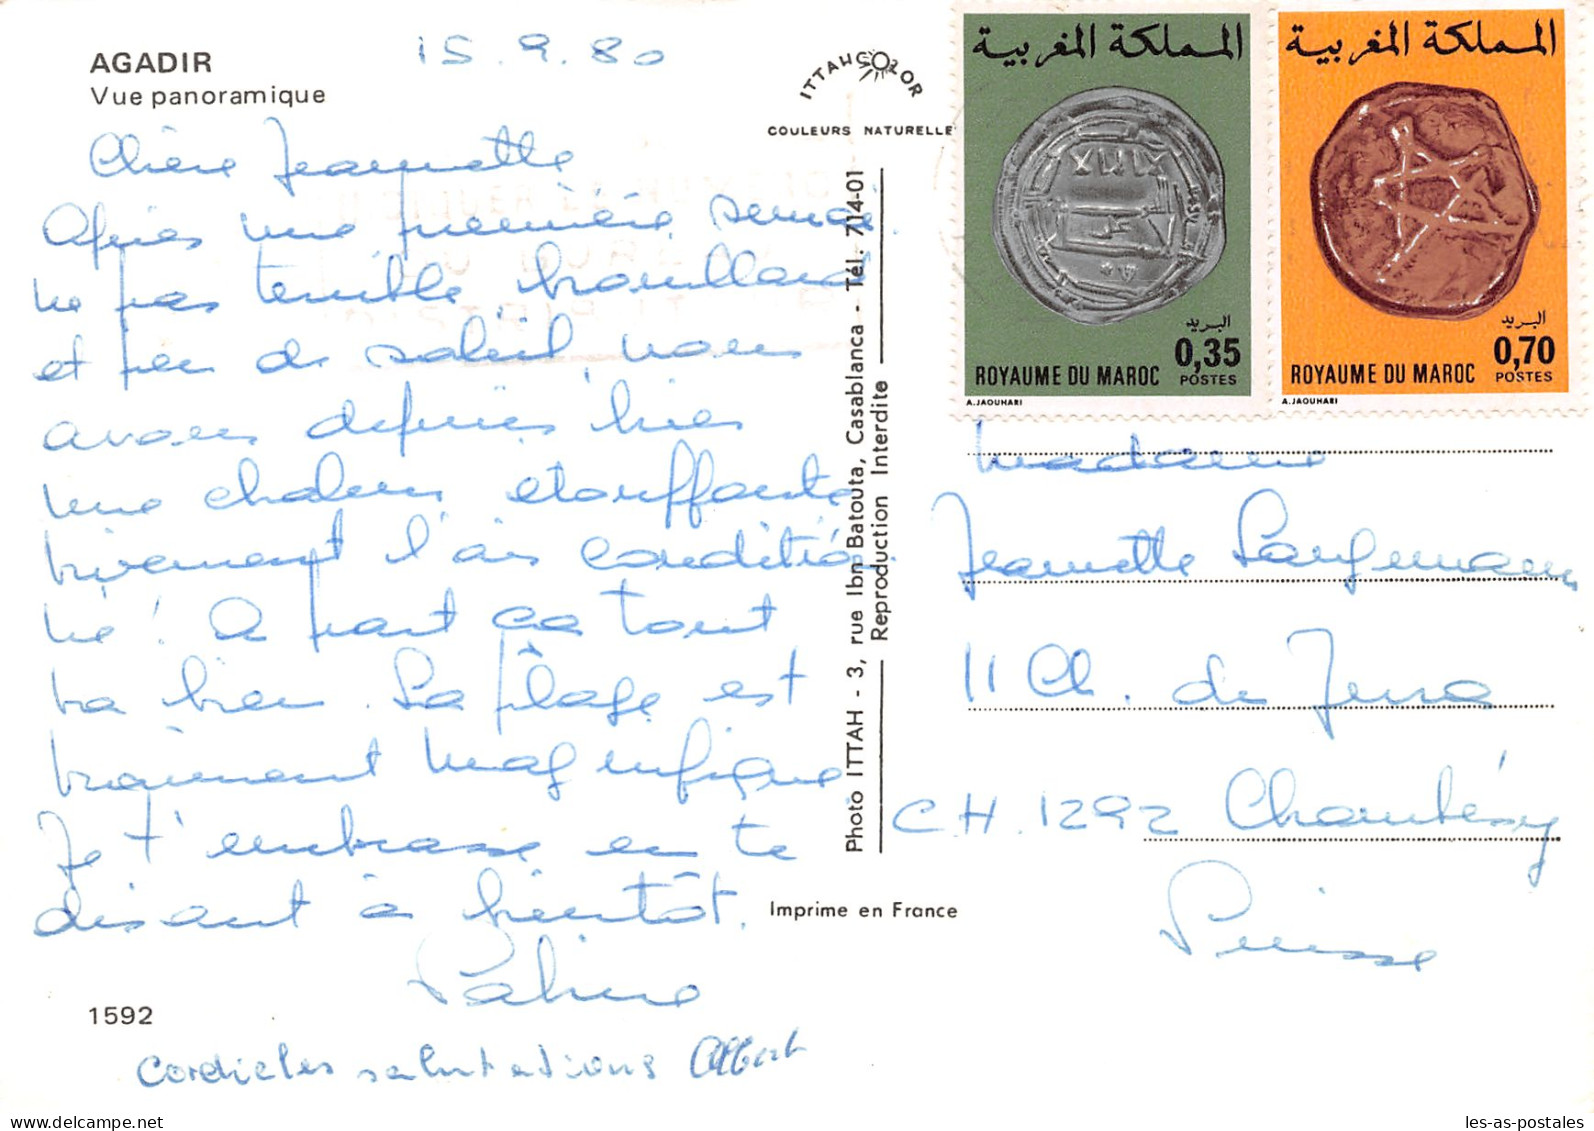 AGADIR
Vue panoramique
15.9.80
ITTAHCOLOR
COULEURS NATURELLE
Chère Jeannette
Après une première semai
ne pas terrible, brouillard
et peu de soleil, nous
avons depuis hier
une chaleur étouffante
vivement l'air condition
né! A part ça tout
va bien. La plage est
vraiment magnifique
Je t'embrasse en te
disant à bientôt.
1592
Cordiales salutations Albert
Photo ITTAH - 3, rue Ibn Batouta, Casablanca - Tél. 714-01
Reproduction Interdite
Imprime en France
المملكة المغربية
البريد
0,35
ROYAUME DU MAROC POSTES
A.JAOUHARI
المملكة المغربية
البريد
0,70
ROYAUME DU MAROC POSTES
A.JAOUHARI
Madame
Jeannette
11 Ch. de
CH. 1292 Chambésy
Suisse
les-as-postales